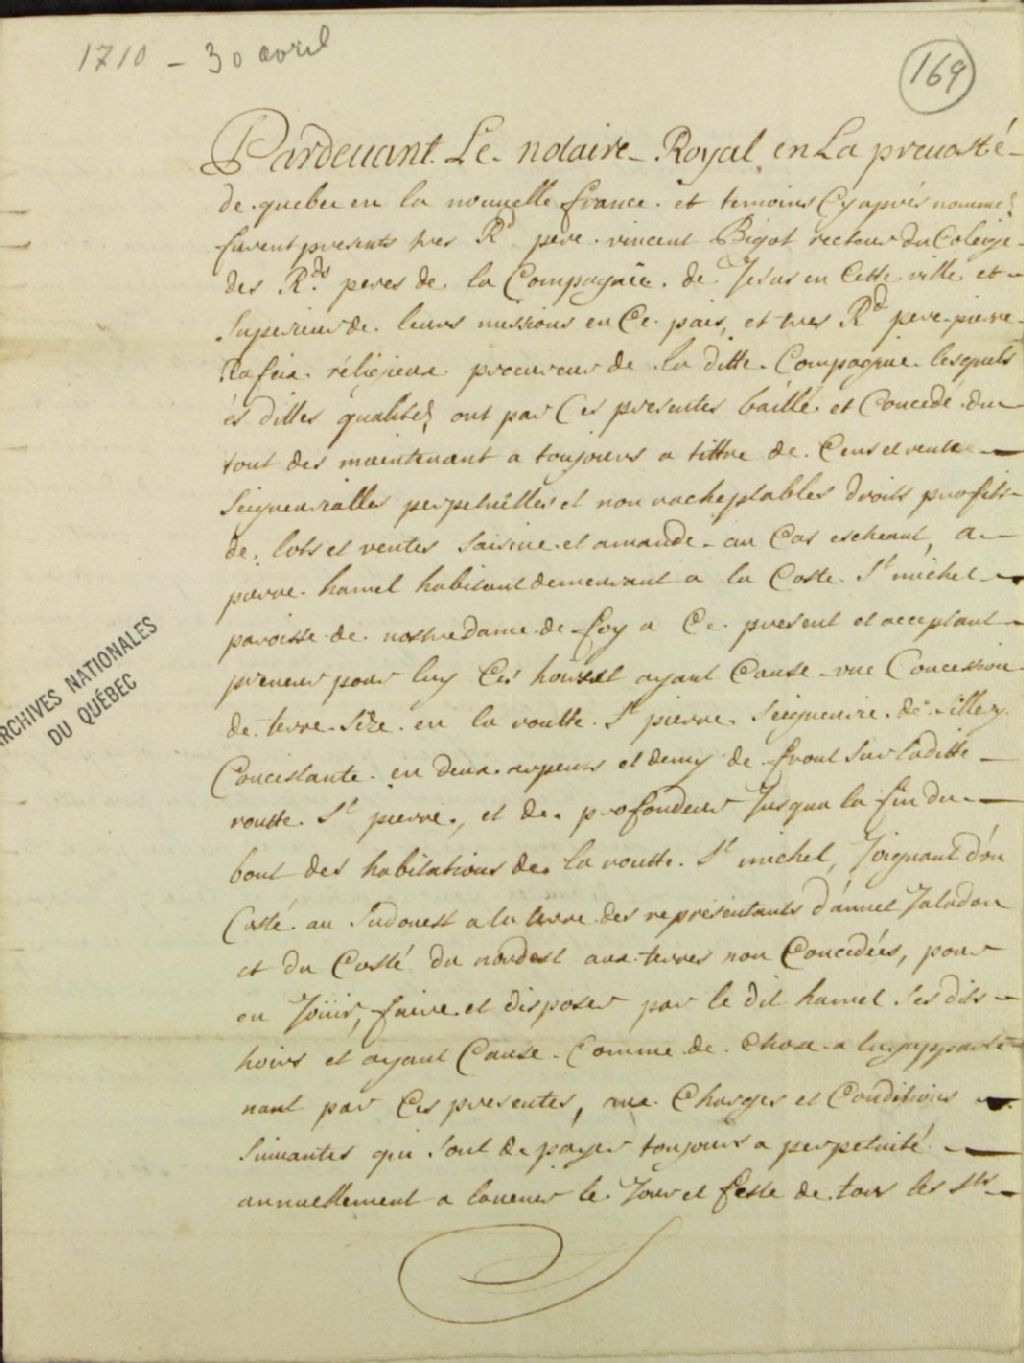 1710 - 30 avril
169
Pardevant Le notaire Royal en La prevosté
de quebec en la nouvelle france et temoins Cy aprés nommez
furent presents tres Rd pere vincent Bigot recteur du Coleige
des Rds peres de la Compagnie de Jesus en Cette ville et
Superieur de leurs missions en Ce pais, et tres Rd pere pierre
Rafeix réligieux procureur de la ditte Compagnie lesquels
és dittes qualitez ont par Ces presentes baillé et Concedé du
tout des maintenant a toujours a tittre de Cens et rente
Seigneurialles perpetuelles et non racheptables droits profits
de lots et ventes saisine et amande au Cas escheant, a
pierre hamel habitant demeurant a la Coste St michel
paroisse de nostre dame de foy a Ce present et acceptant
preneur pour luy Ces hoirs et ayant Cause une Concession
de terre size en la routte St pierre Seigneurie de Sillery
Concistante en deux arpents et demy de front Sur laditte
routte St pierre, et de profondeur Jusqua la fin du
bout des habitations de la routte St michel, Joignant d'un
Costé au Sudouest a la terre des representants d'annet Jaladon
et du Costé du nordest aux terres non Concedées, pour
en Jöuir, faire et disposer par le dit hamel Ses dits
hoirs et ayant Cause Comme de Chose a luy apparte
nant par Ces presentes, aux Charges et Conditions
Suivantes qui sont de payer toujours a perpetuité
annuellement a lavenir le Jour et feste de tous les Sts
ARCHIVES NATIONALES
DU QUÉBEC